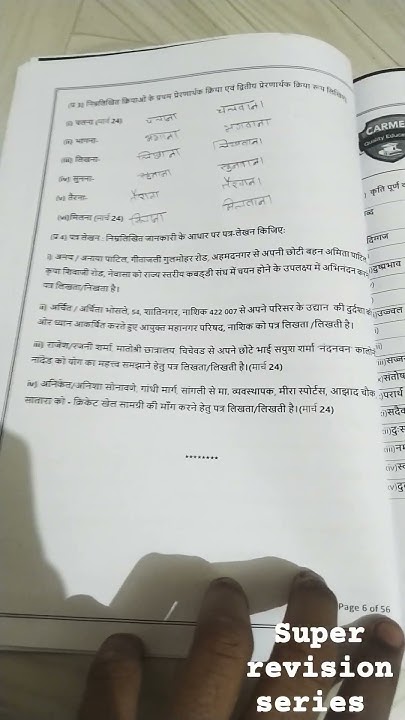 (प्र 3) निम्नलिखित क्रियाओं के प्रथम प्रेरणार्थक क्रिया एवं द्वितीय प्रेरणार्थक क्रिया रूप लिखिए
(i) चलना (मार्च 24) चलाना चलवाना
(ii) भागना- भगाना भगवाना
(iii) लिखना- लिखाना लिखवाना
(iv) सुनना- सुनाना सुनवाना
(v) तैरना- तैराना तैरवाना
(vi) मिलना (मार्च 24) मिलाना मिलवाना
(प्र 4) पत्र लेखन : निम्नलिखित जानकारी के आधार पर पत्र-लेखन किजिए:
i) अनय / अनाया पाटिल, गीतांजली गुलमोहर रोड, अहमदनगर से अपनी छोटी बहन अमिता पाटिल
कृपा शिवाजी रोड, नेवासा को राज्य स्तरीय कबड्डी संघ में चयन होने के उपलक्ष्य में अभिनंदन करने
पत्र लिखता/लिखती है।
ii) अर्चित / अर्चिता भोसले, 54, शांतिनगर, नाशिक 422 007 से अपने परिसर के उद्यान की दुर्दशा की
ओर ध्यान आकर्षित करते हुए आयुक्त महानगर परिषद, नाशिक को पत्र लिखता /लिखती है।
iii) राजेश/रजनी शर्मा, मातोश्री छात्रालय चिचेवड से अपने छोटे भाई सयुश शर्मा 'नंदनवन' कालोनी
नांदेड को योग का महत्व समझाने हेतु पत्र लिखता/लिखती है।(मार्च 24)
iv) अनिकेत/अनिशा सोनावणे, गांधी मार्ग, सांगली से मा. व्यवस्थापक, मीरा स्पोर्टस, आझाद चौक
सातारा को - क्रिकेट खेल सामग्री की माँग करने हेतु पत्र लिखता/लिखती है।(मार्च 24)
********
Page 6 of 56
CARME
Quality Educa
कृति पूर्ण
Super
revision
series